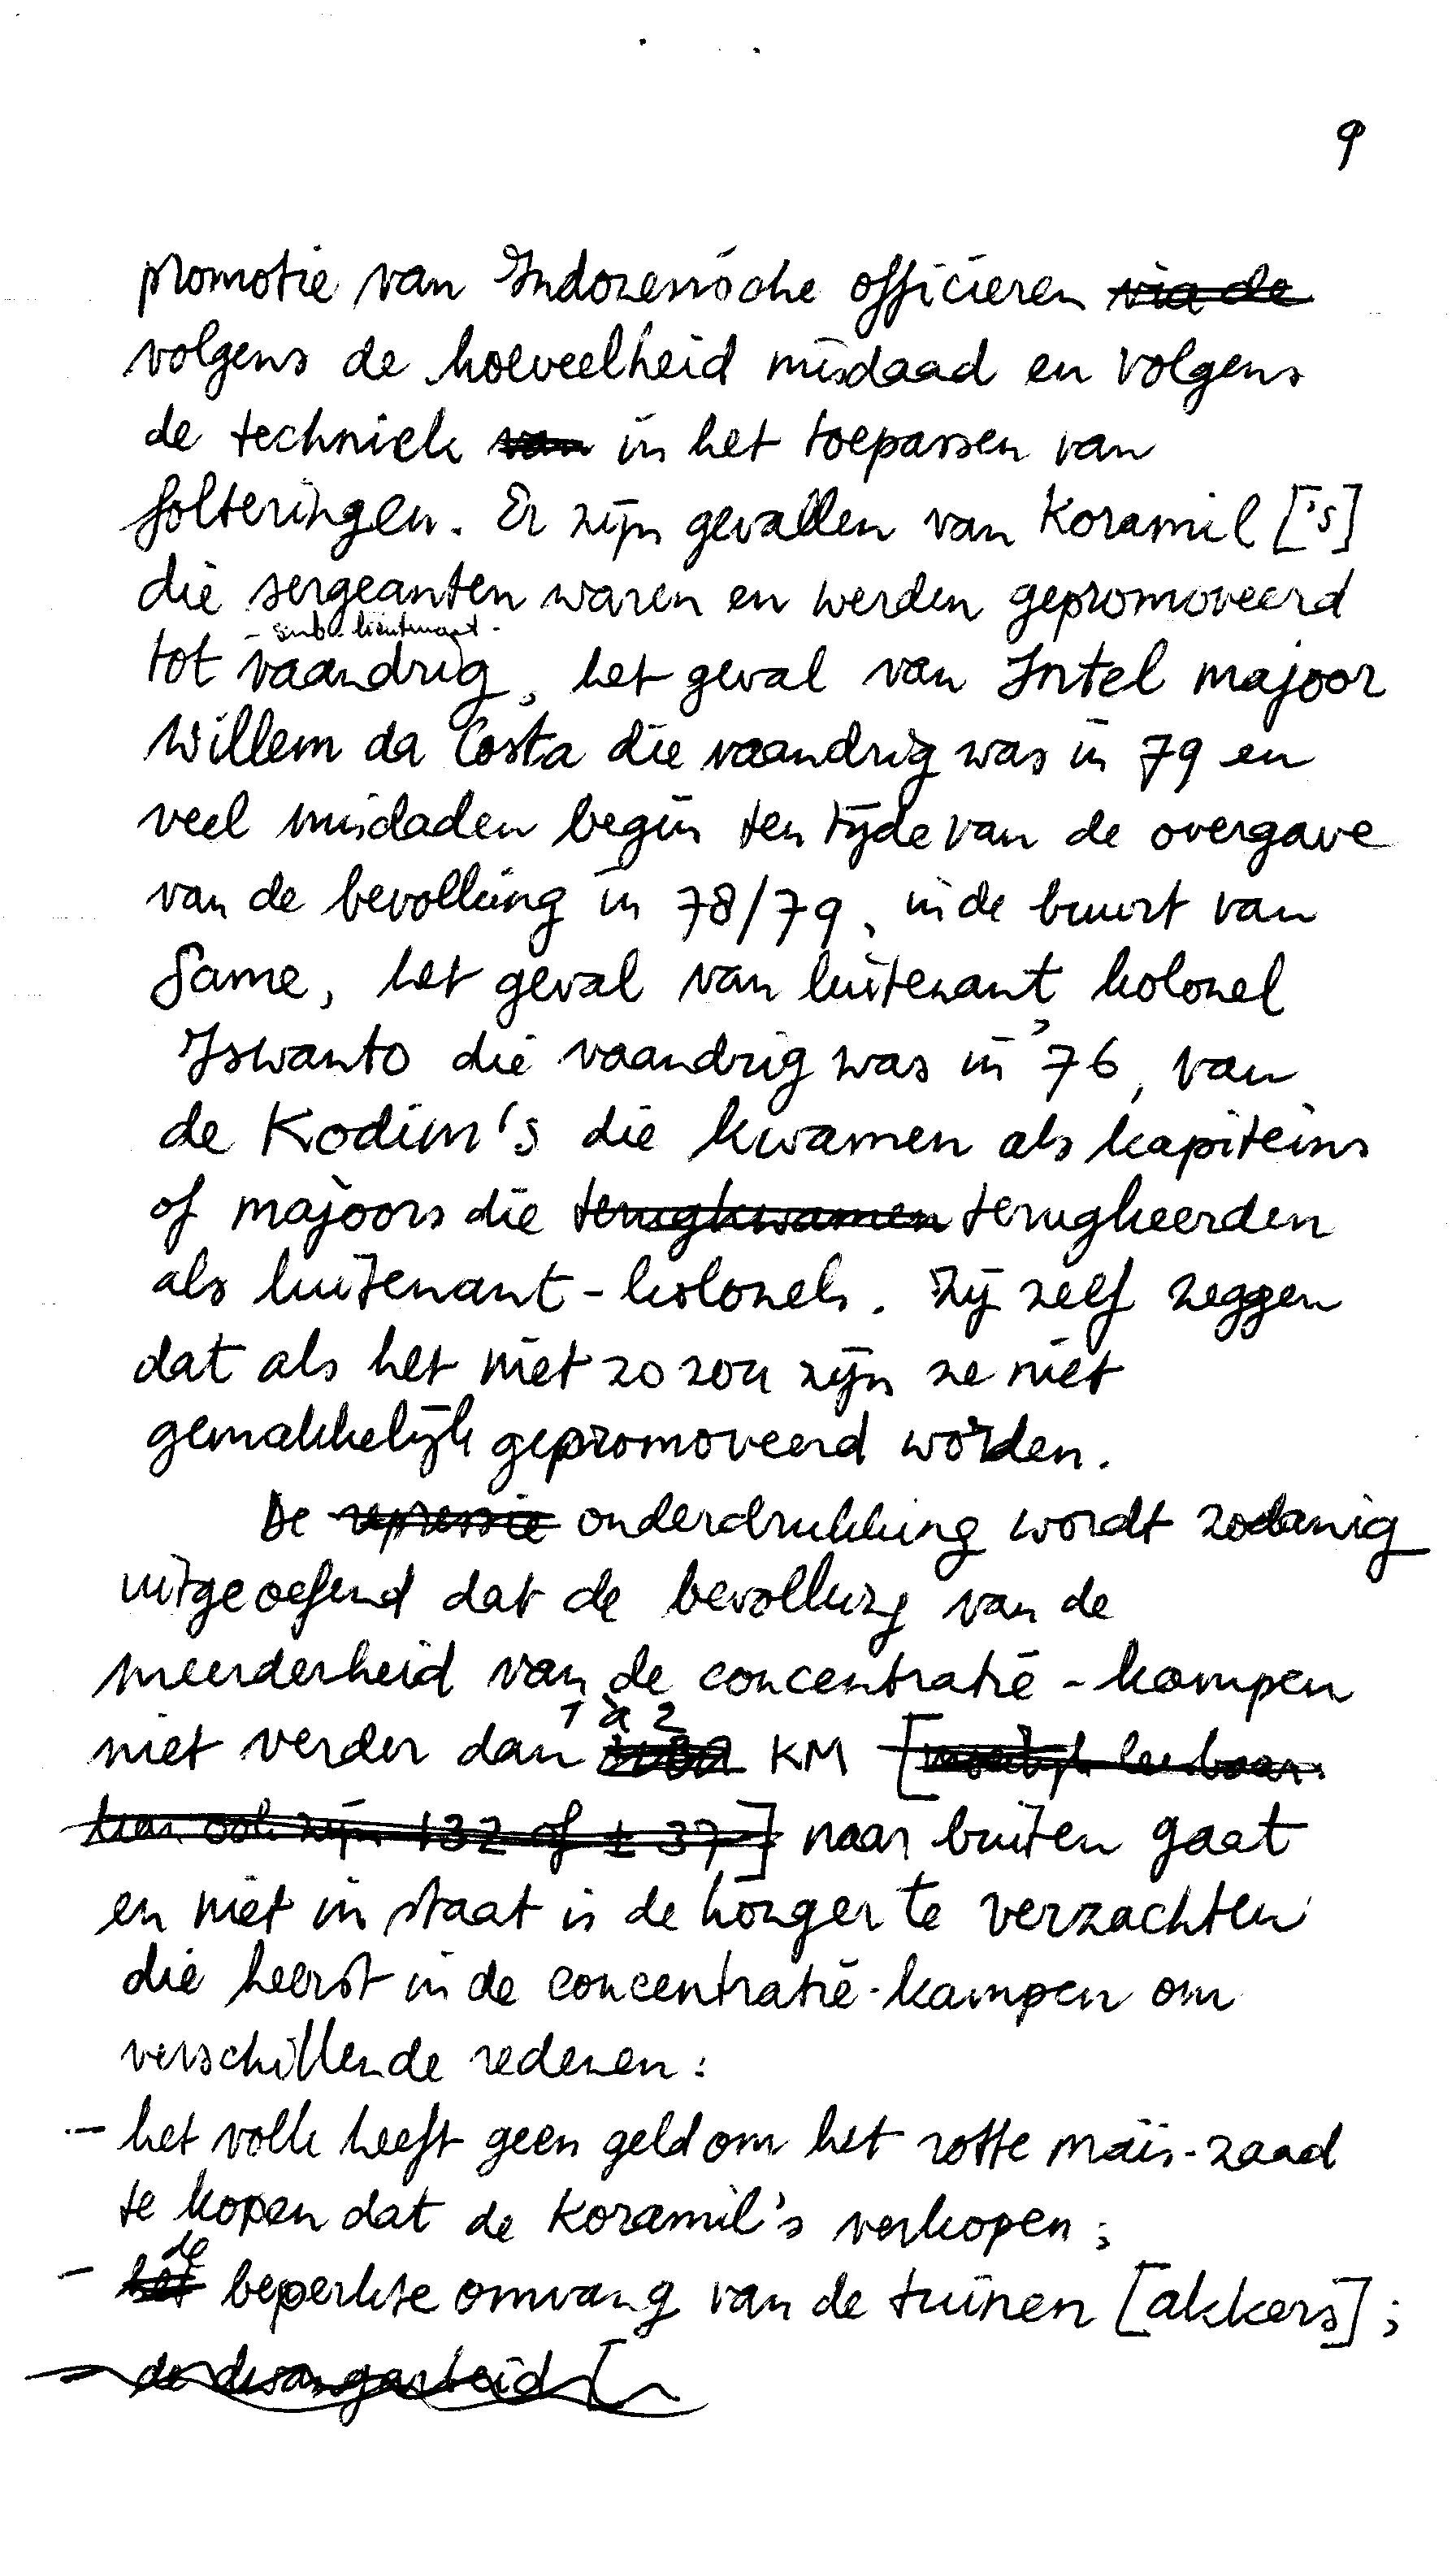 9
promotie van Indonesische officieren via de
volgens de hoeveelheid misdaad en volgens
de techniek van in het toepassen van
folteringen. Er zijn gevallen van Koramil ['s]
die sergeanten waren en werden gepromoveerd
- sub-lieutnant -
tot vaandrig, het geval van Intel majoor
Willem da Costa die vaandrig was in 79 en
veel misdaden begin ten tijde van de overgave
van de bevolking in 78/79, in de buurt van
Same, het geval van luitenant kolonel
Iswanto die vaandrig was in '76, van
de Kodim's die kwamen als kapiteins
of majoors die terugkwamen terugkeerden
als luitenant-kolonels. Zij zelf zeggen
dat als het niet zo zou zijn ze niet
gemakkelijk gepromoveerd worden.
De repressie onderdrukking wordt zodanig
uitgeoefend dat de bevolking van de
meerderheid van de concentratie-kampen
1 à 2
niet verder dan KM [moeilijk leesbaar.
kan ook zijn 132 of ± 37] naar buiten gaat
en niet in staat is de honger te verzachten
die heerst in de concentratie-kampen om
verschillende redenen:
- het volk heeft geen geld om het rotte maïs-zaad
te kopen dat de Koramil's verkopen;
de
- het beperkte omvang van de tuinen [akkers];
- de dwangarbeid [